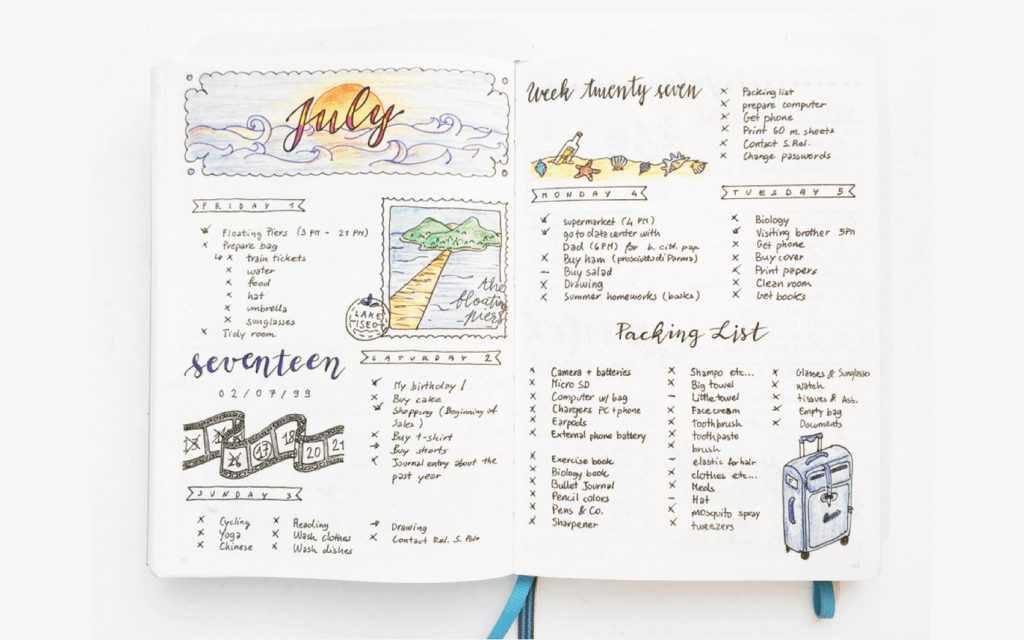 July
FRIDAY 1
Floating Piers (3 PM - 21 PM)
Prepare bag
train tickets
water
food
hat
umbrella
sunglasses
Tidy room
the
floating
piers
LAKE
ISEO
seventeen
02/07/99
17
18
20
21
SATURDAY 2
My birthday!
Buy cake
Shopping (Beginning of
Sales)
Buy t-shirt
Buy shorts
Journal entry about the
past year
SUNDAY 3
Cycling
Yoga
Chinese
Reading
Wash clothes
Wash dishes
Drawing
Contact Rel. S.
Week twenty seven
Packing list
prepare computer
Get phone
Print 60 m. sheets
Contact S. Rel.
Change passwords
MONDAY 4
supermarket (4 PM)
go to data center with
Dad (6PM) for b. citk. pap.
Buy ham (prosciutto di Parma)
Buy salad
Drawing
Summer homeworks (books)
TUESDAY 5
Biology
Visiting brother 5PM
Get phone
Buy cover
Print papers
Clean room
Get books
Packing List
Camera + batteries
Micro SD
Computer w/ bag
Chargers PC + phone
Earpods
External phone battery
Exercise book
Biology book
Bullet Journal
Pencil colors
Pens & Co.
Sharpener
Shampo etc...
Big towel
Little towel
Face cream
toothbrush
toothpaste
brush
elastic for hair
clothes etc...
Meds
Hat
mosquito spray
tweezers
Glasses & Sunglasses
watch
tissues & Asb.
Empty bag
Documents